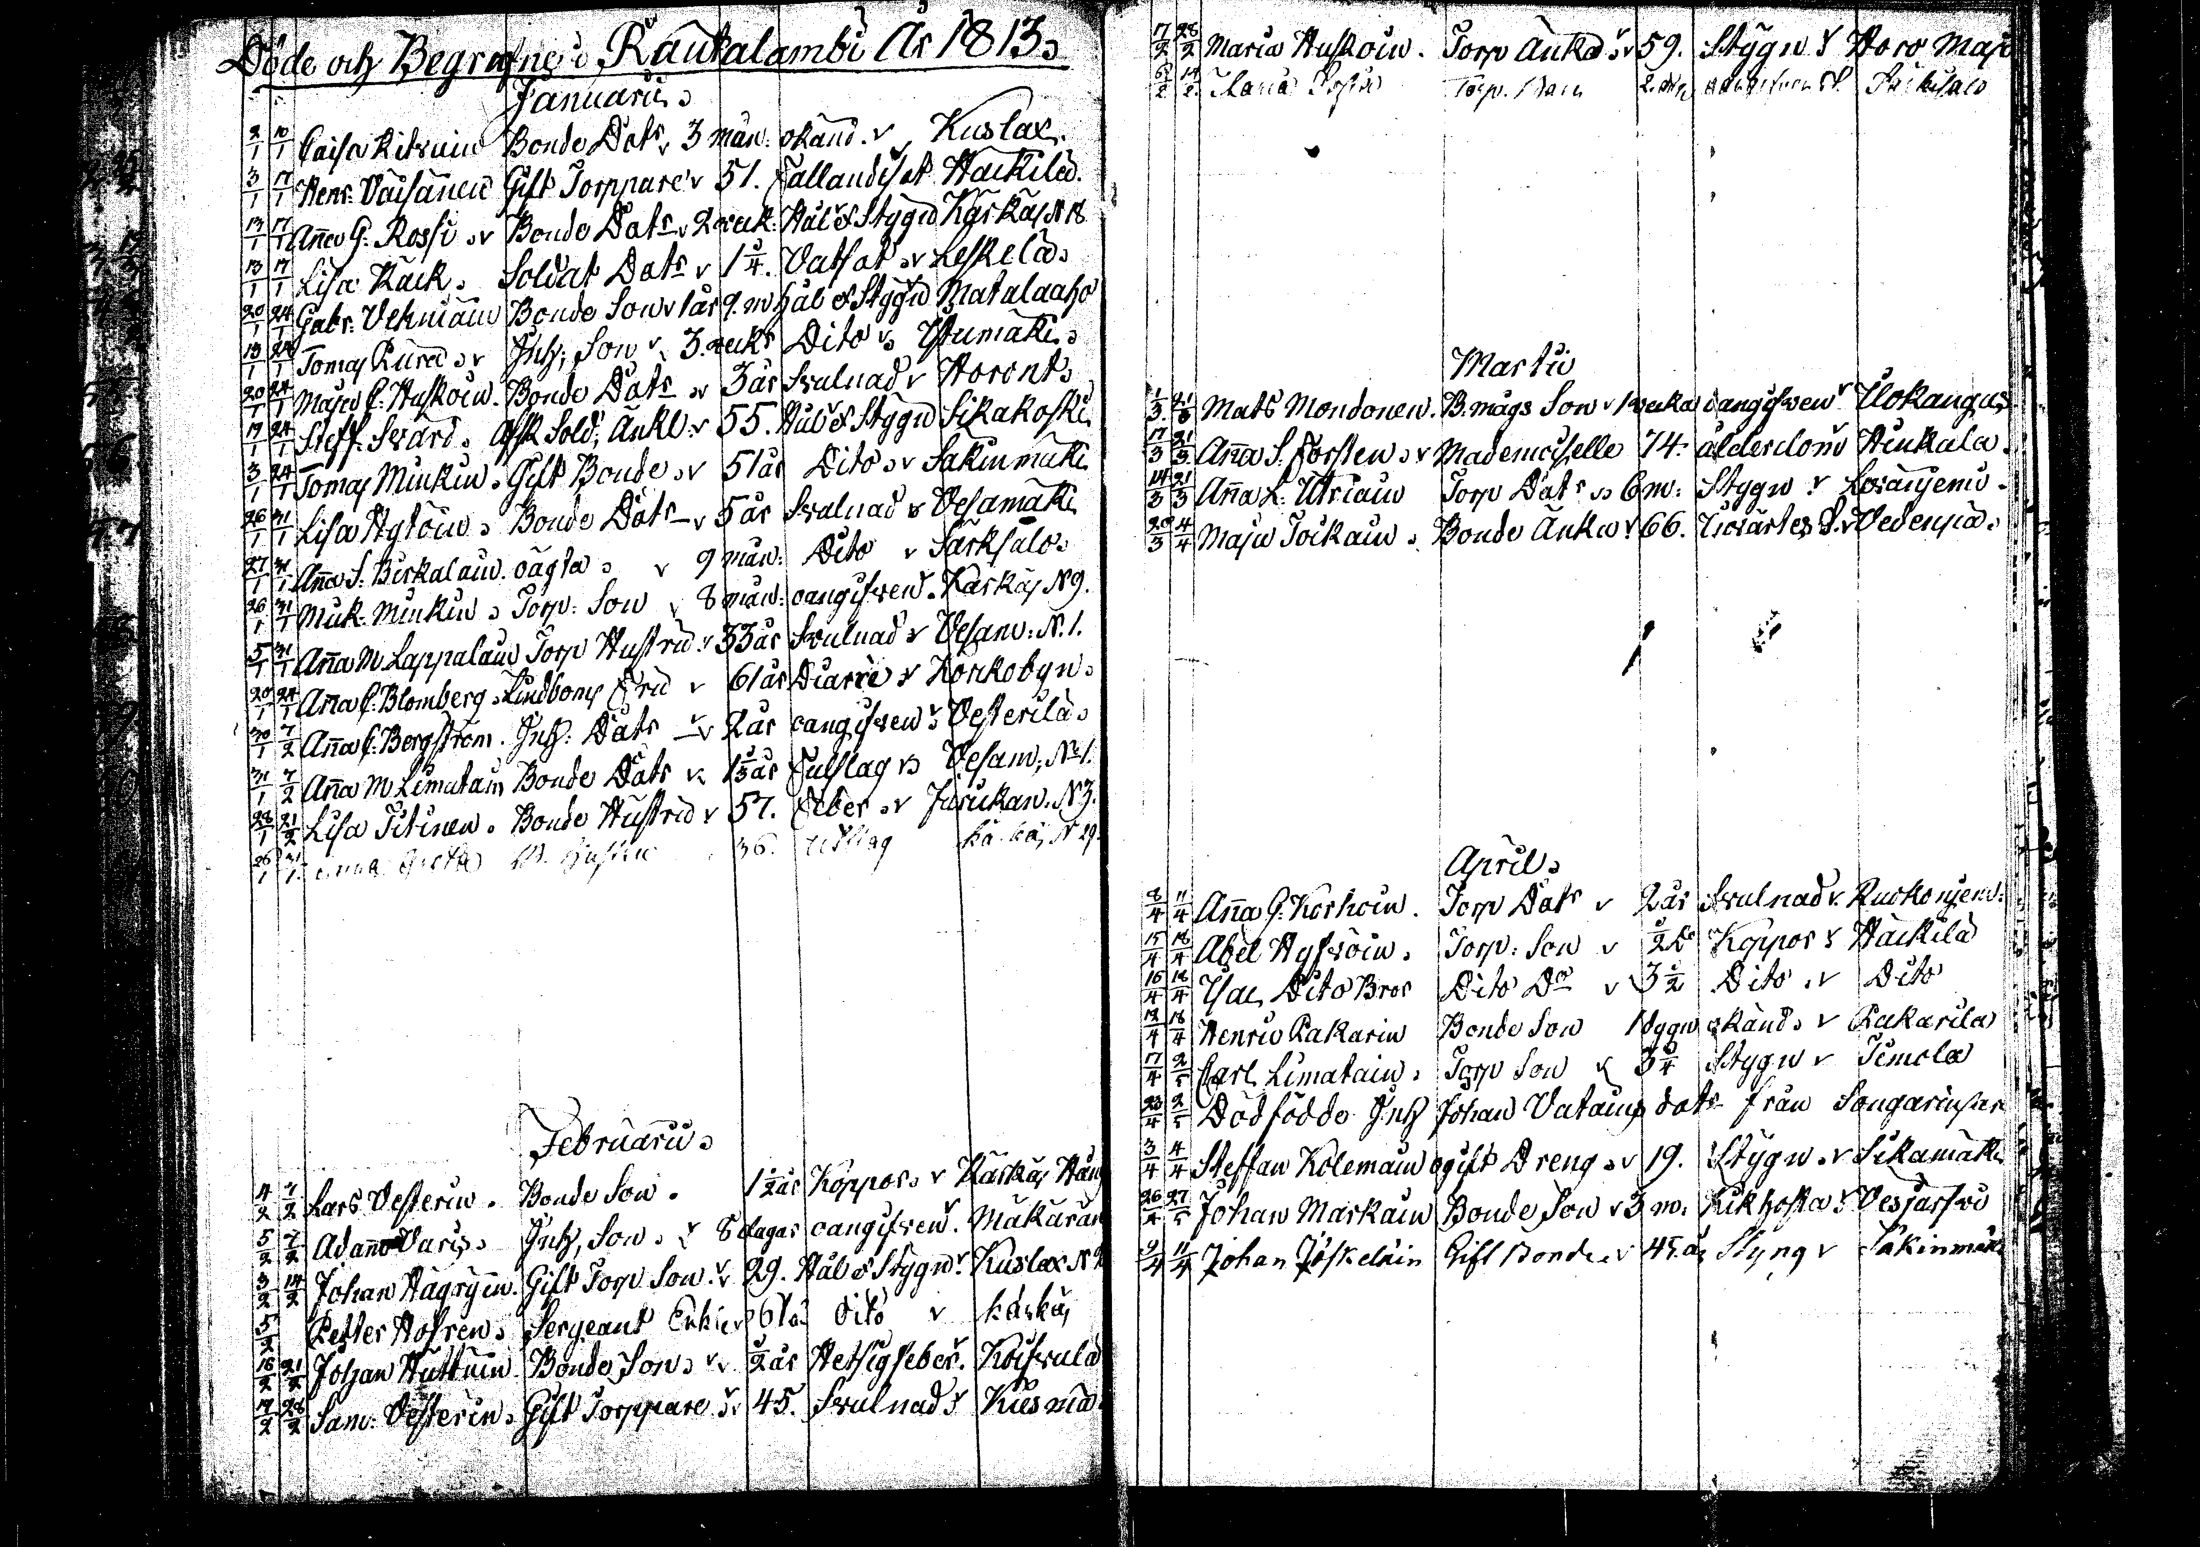 Döde och Begrafne i Rautalambi År 1813.
Januarii.
2/1 10/1 Caisa Kitunin Bonde Dotr 3 mån: okänd. Kuslax.
3/1 17/1 Henr: Väisänen Gift Torppare 51. Fallandesot Hackilä.
13/1 17/1 Aña G: Rossi Bonde Dotr 2 veck: Hål & Stygn Kärkäs N 18
13/1 17/1 Lisa Käck. Soldat Dotr 1 1/4. Vatsot Leskelä.
20/1 24/1 Gabr: Vehmain Bonde Son 1 år 9. m Hål & Stygn Matalaaho
13/1 24/1 Tomas Inh: Son 3. veckr Dito Istumäki.
20/1 24/1 Maja C: Huskoin. Bonde Dotr 3 år Svulnad Horont.
17/1 24/1 Steff. Svärd. Afsk Sold; Änkl: 55. Hål & Stygn Sikakoski
3/1 24/1 Tomas Minkin. Gift Bonde 51 år Dito Säkinmäki
26/1 31/1 Lisa Hytöin. Bonde Dotr 5 år Svulnad Vesamäki
27/1 31/1 Aña S: Birkalain. oägta 9 mån: Dito Särksalo.
26/1 31/1 Mick: Minkin. Torp: Son 8 mån: oangifven. Kärkäs N 9.
5/1 31/1 Aña M. Lappalain Torp Hustru 33 år Svulnad Vesam: N. 1.
20/1 24/1 Aña C: Blomberg. Lindboms Fru 61 år Diarré Konkobyn.
30/1 7/2 Aña C: Bergström. Inh: Dotr 2 år oangifven Vesterilä.
31/1 7/2 Aña M Limatain Bonde Dotr år Vesam; No 1.
28/1 21/2 Lisa Titinen. Bonde Hustru 57. Feber N 3.
26/1 31/1 Anna Greta 36. N 29.
Februarii.
4/2 7/2 Lars Vesterin. Bonde Son. 1 1/2 år Koppor. Kärkäs
5/2 7/2 Adam Varis. Inh, Son. 8 dagar oangifven.
3/2 14/2 Johan Hägrÿn. Gift Torp Son. 29. Hål & Stygn. Kuslax N
5/2 Petter Hofren. Sergeant Dito Kärkäs
16/2 21/2 Johan Huttuin Bonde Son. 1/2 år Hetsigfeber. Koivula
17/2 28/2 Sam: Vesterin. Gift Torppare 45. Svulnad Kiesimä
17/2 28/2 Maria Huskoin. Torp Änka 59. Stygn
6/2 14/2 Maria Torp. Barn
Martii
1/3 21/3 Mats Mondonen. B. mågs Son 1 vecka oangifven Ilokangas
17/3 21/3 Aña S. Forsten Mademoiselle 74. ålderdom Hinkala.
14/3 21/3 Aña L: Utriain Torp Dotr 6 m: Stygn
20/3 4/4 Maja Toikain. Bonde Änka 66. Vedenpä.
April.
8/4 11/4 Aña G: Korhoin. Torp Dotr 2 år Svulnad
15/4 18/4 Abel Hyfvöin. Torp: Son Koppor Häckilä
16/4 18/4 Isac, Dito Bror Dito Do 3 1/2 Dito Dito
12/4 18/4 Henric Pakarin Bonde Son 1 dygn okänd. Pakarila
17/4 2/5 Carl Limatain. Torp Son 3 3/4 Stygn Timola
23/4 2/5 Dödfödde Inh Johan Vatains dotr från Songarinsari
3/4 4/4 Steffan Kolemain ogift Dreng 19. Stygn Sikamäki
26/4 27/5 Johan Markain Bonde Son 3 m. Kikhosta Vesjärfvi
9/4 11/4 Johan Jöskeläin Gift Bonde 45. år Styng Säkinmäki